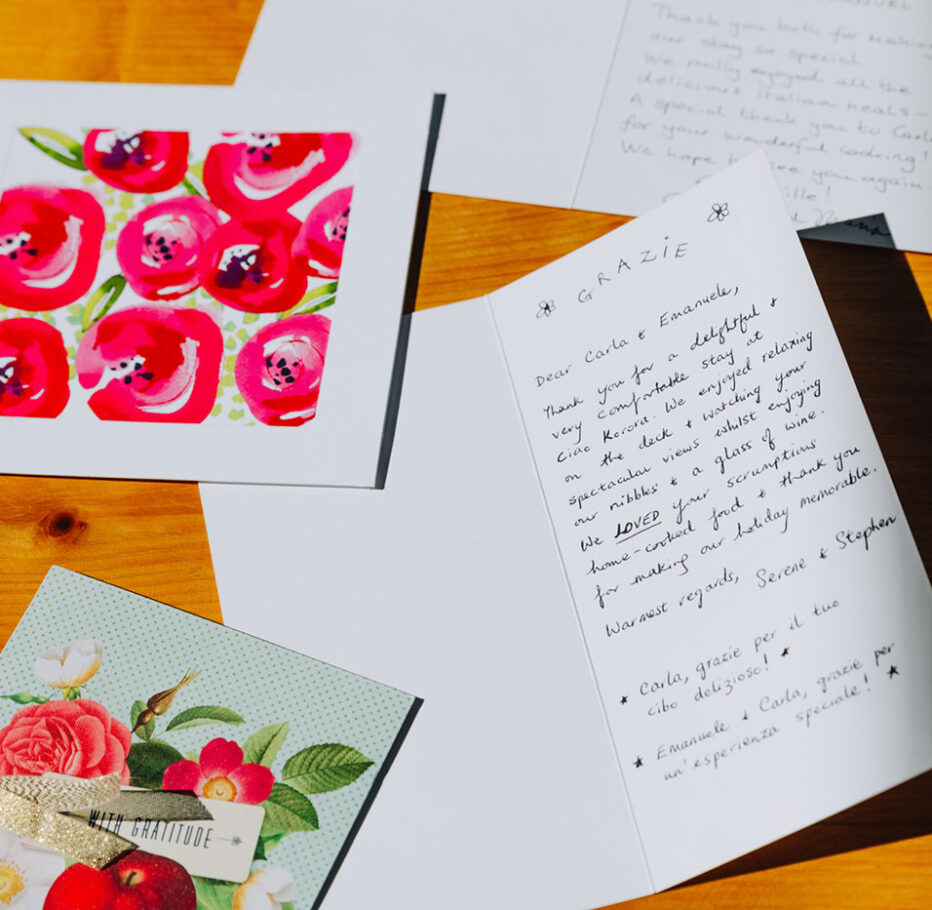 Thank you both for making
our stay so special.
We really enjoyed all the
delicious Italian meals -
A special thank you to Carla
for your wonderful cooking!
We hope to see you again
GRAZIE
Dear Carla & Emanuele,
Thank you for a delightful &
very comfortable stay at
Ciao Korora. We enjoyed relaxing
on the deck & watching your
spectacular views whilst enjoying
our nibbles & a glass of wine.
We LOVED your scrumptious
home-cooked food & thank you
for making our holiday memorable.
Warmest regards, Serene & Stephen
★ Carla, grazie per il tuo
cibo delizioso! ★
★ Emanuele & Carla, grazie per
un'esperienza speciale! ★
WITH GRATITUDE